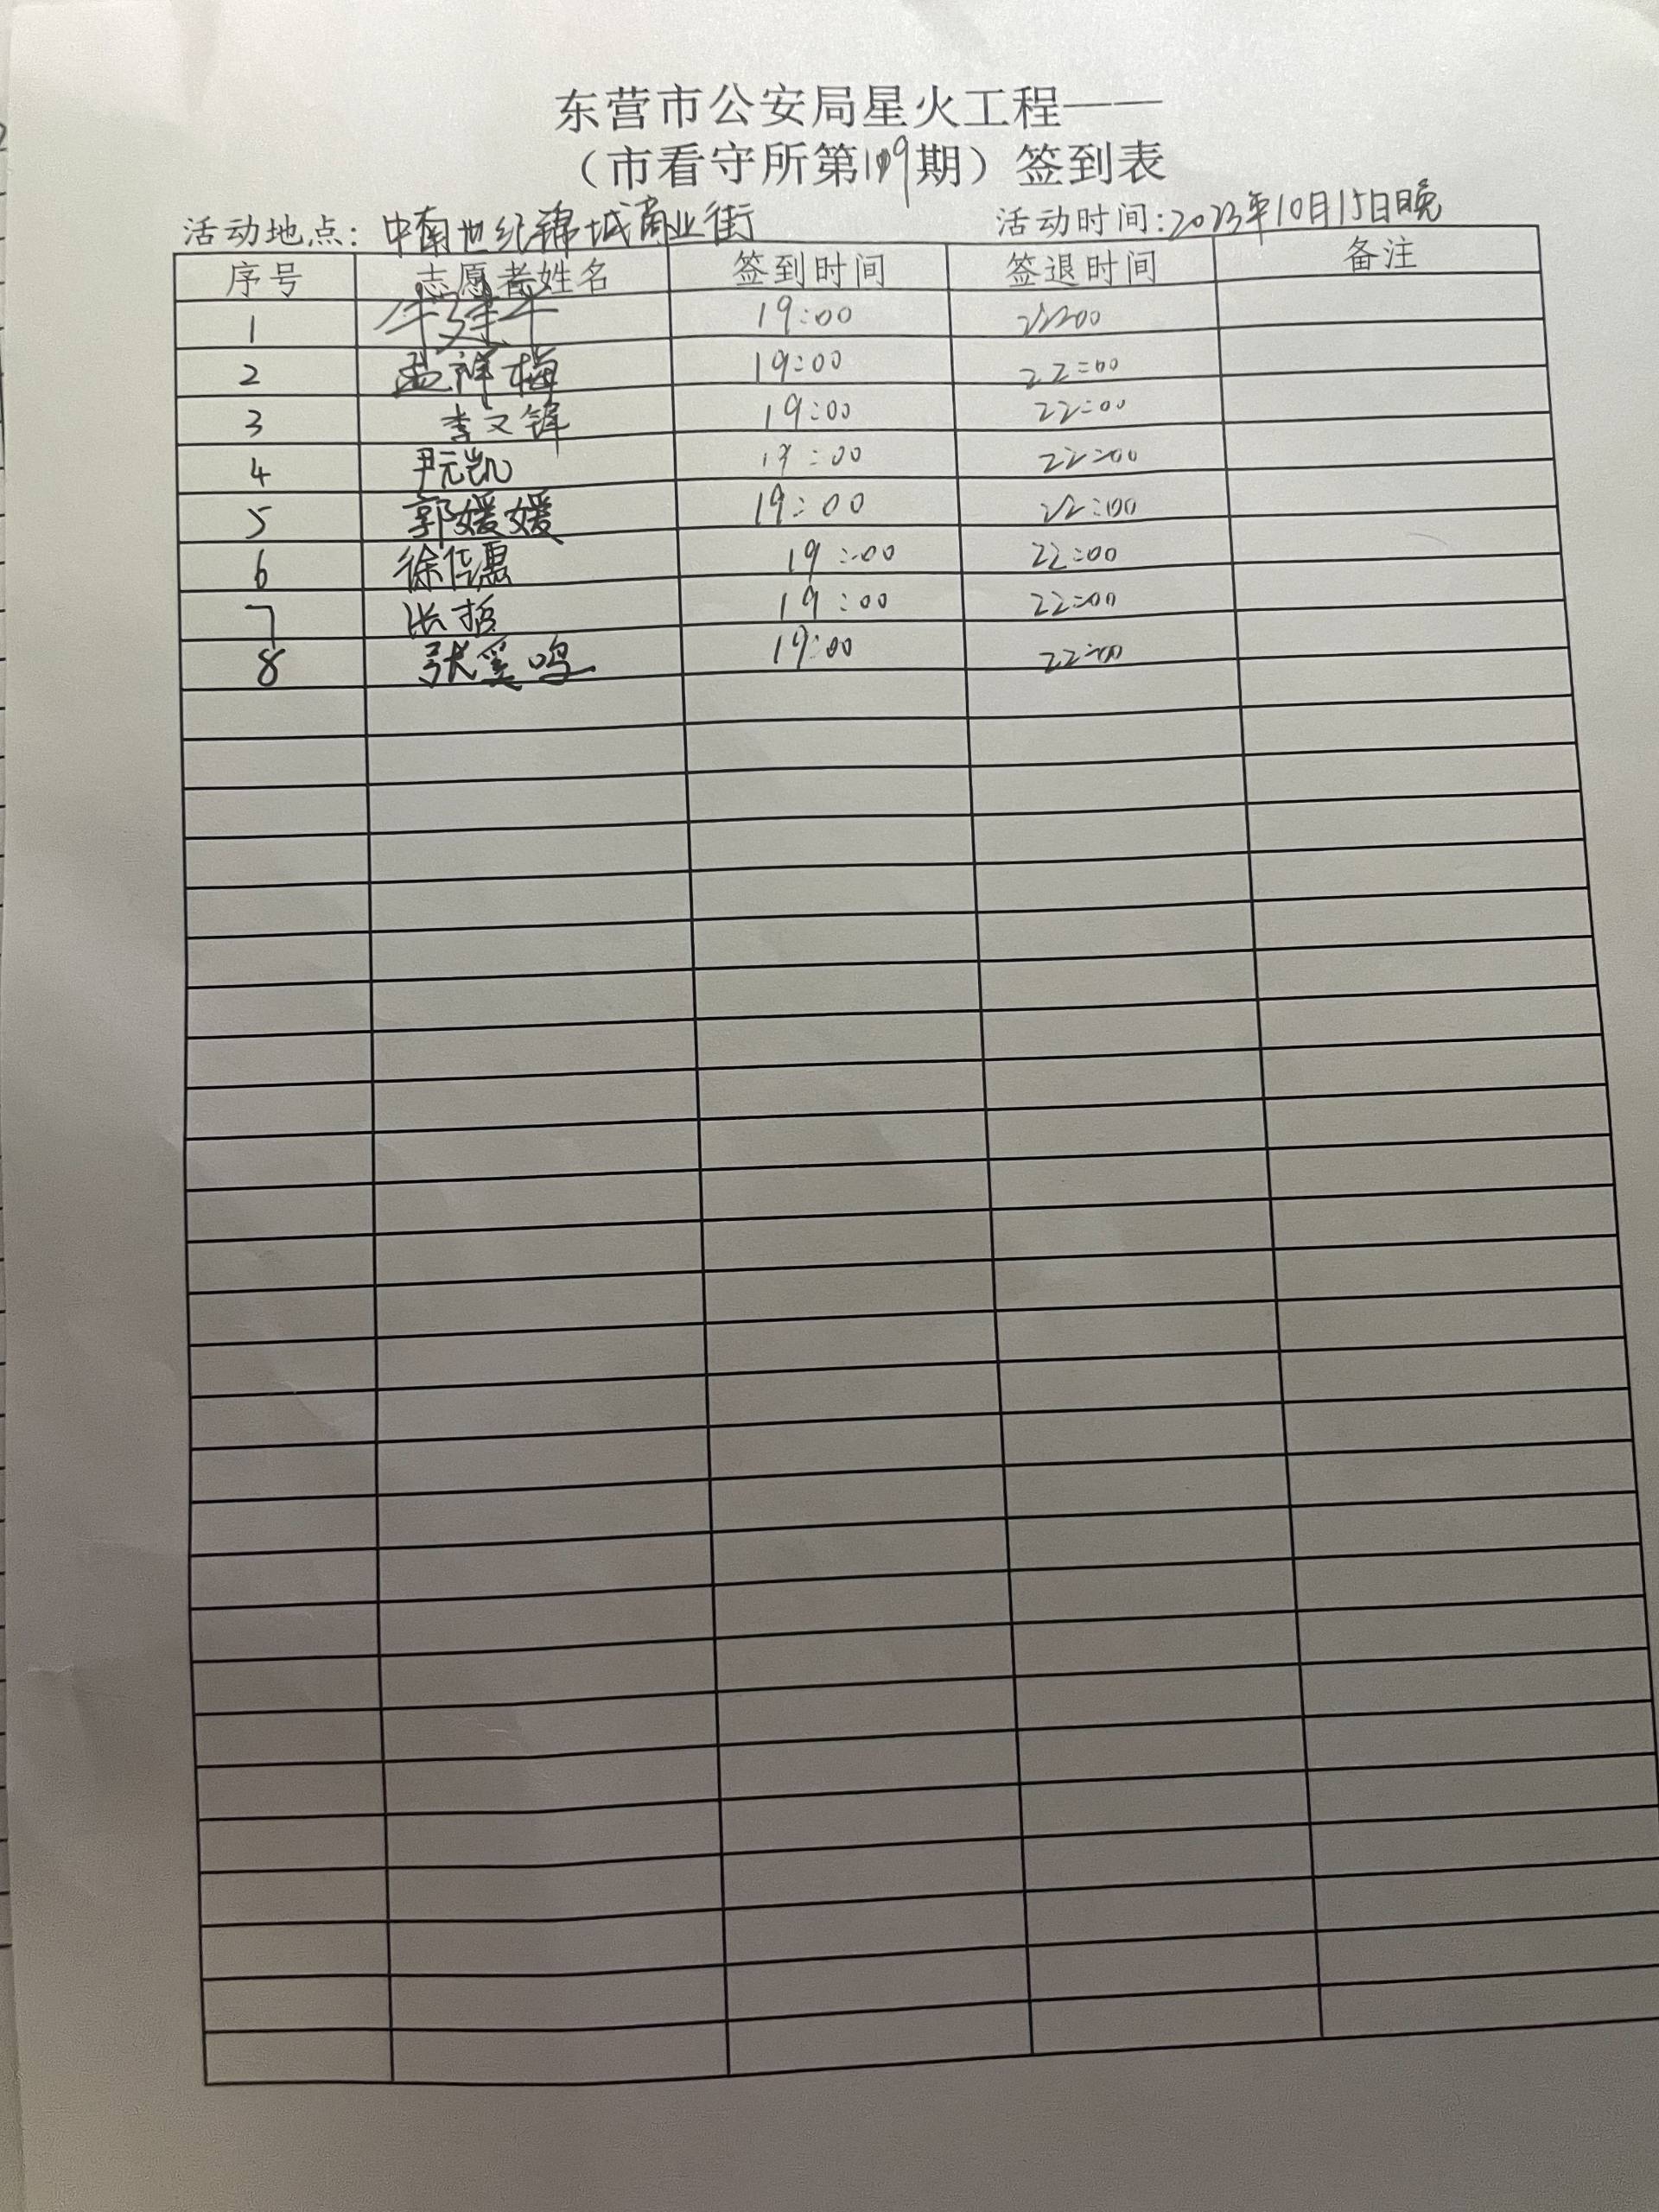 东营市公安局星火工程——
（市看守所第109期）签到表
活动地点：中南世纪锦城商业街 活动时间：2023年10月15日晚
序号 志愿者姓名 签到时间 签退时间 备注
1 牛建军 19:00 22:00
2 孟祥梅 19:00 22:00
3 李文锋 19:00 22:00
4 尹元凯 19:00 22:00
5 郭媛媛 19:00 22:00
6 徐佳惠 19:00 22:00
7 张哲 19:00 22:00
8 张奚鸣 19:00 22:00